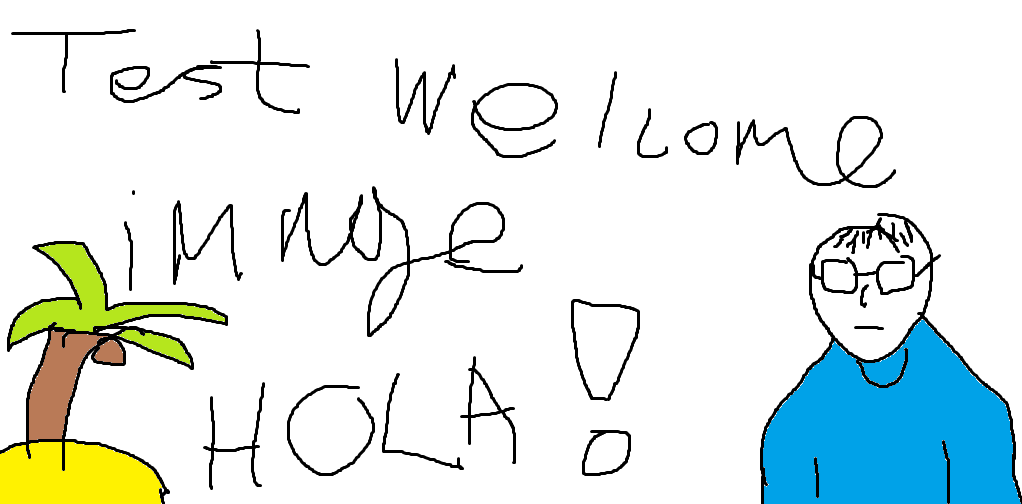 Test Welcome
image
HOLA!